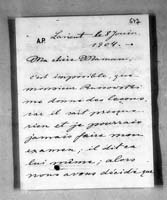 617
A.P. Lorient le 8 Juin
1904.
Ma chère Maman,
c'est impossible que
monsieur
me donne des leçons,
car il sait presque
rien et je pourrais
jamais faire mon
examen, il dit ça
lui même, alors
nous avons décidé que